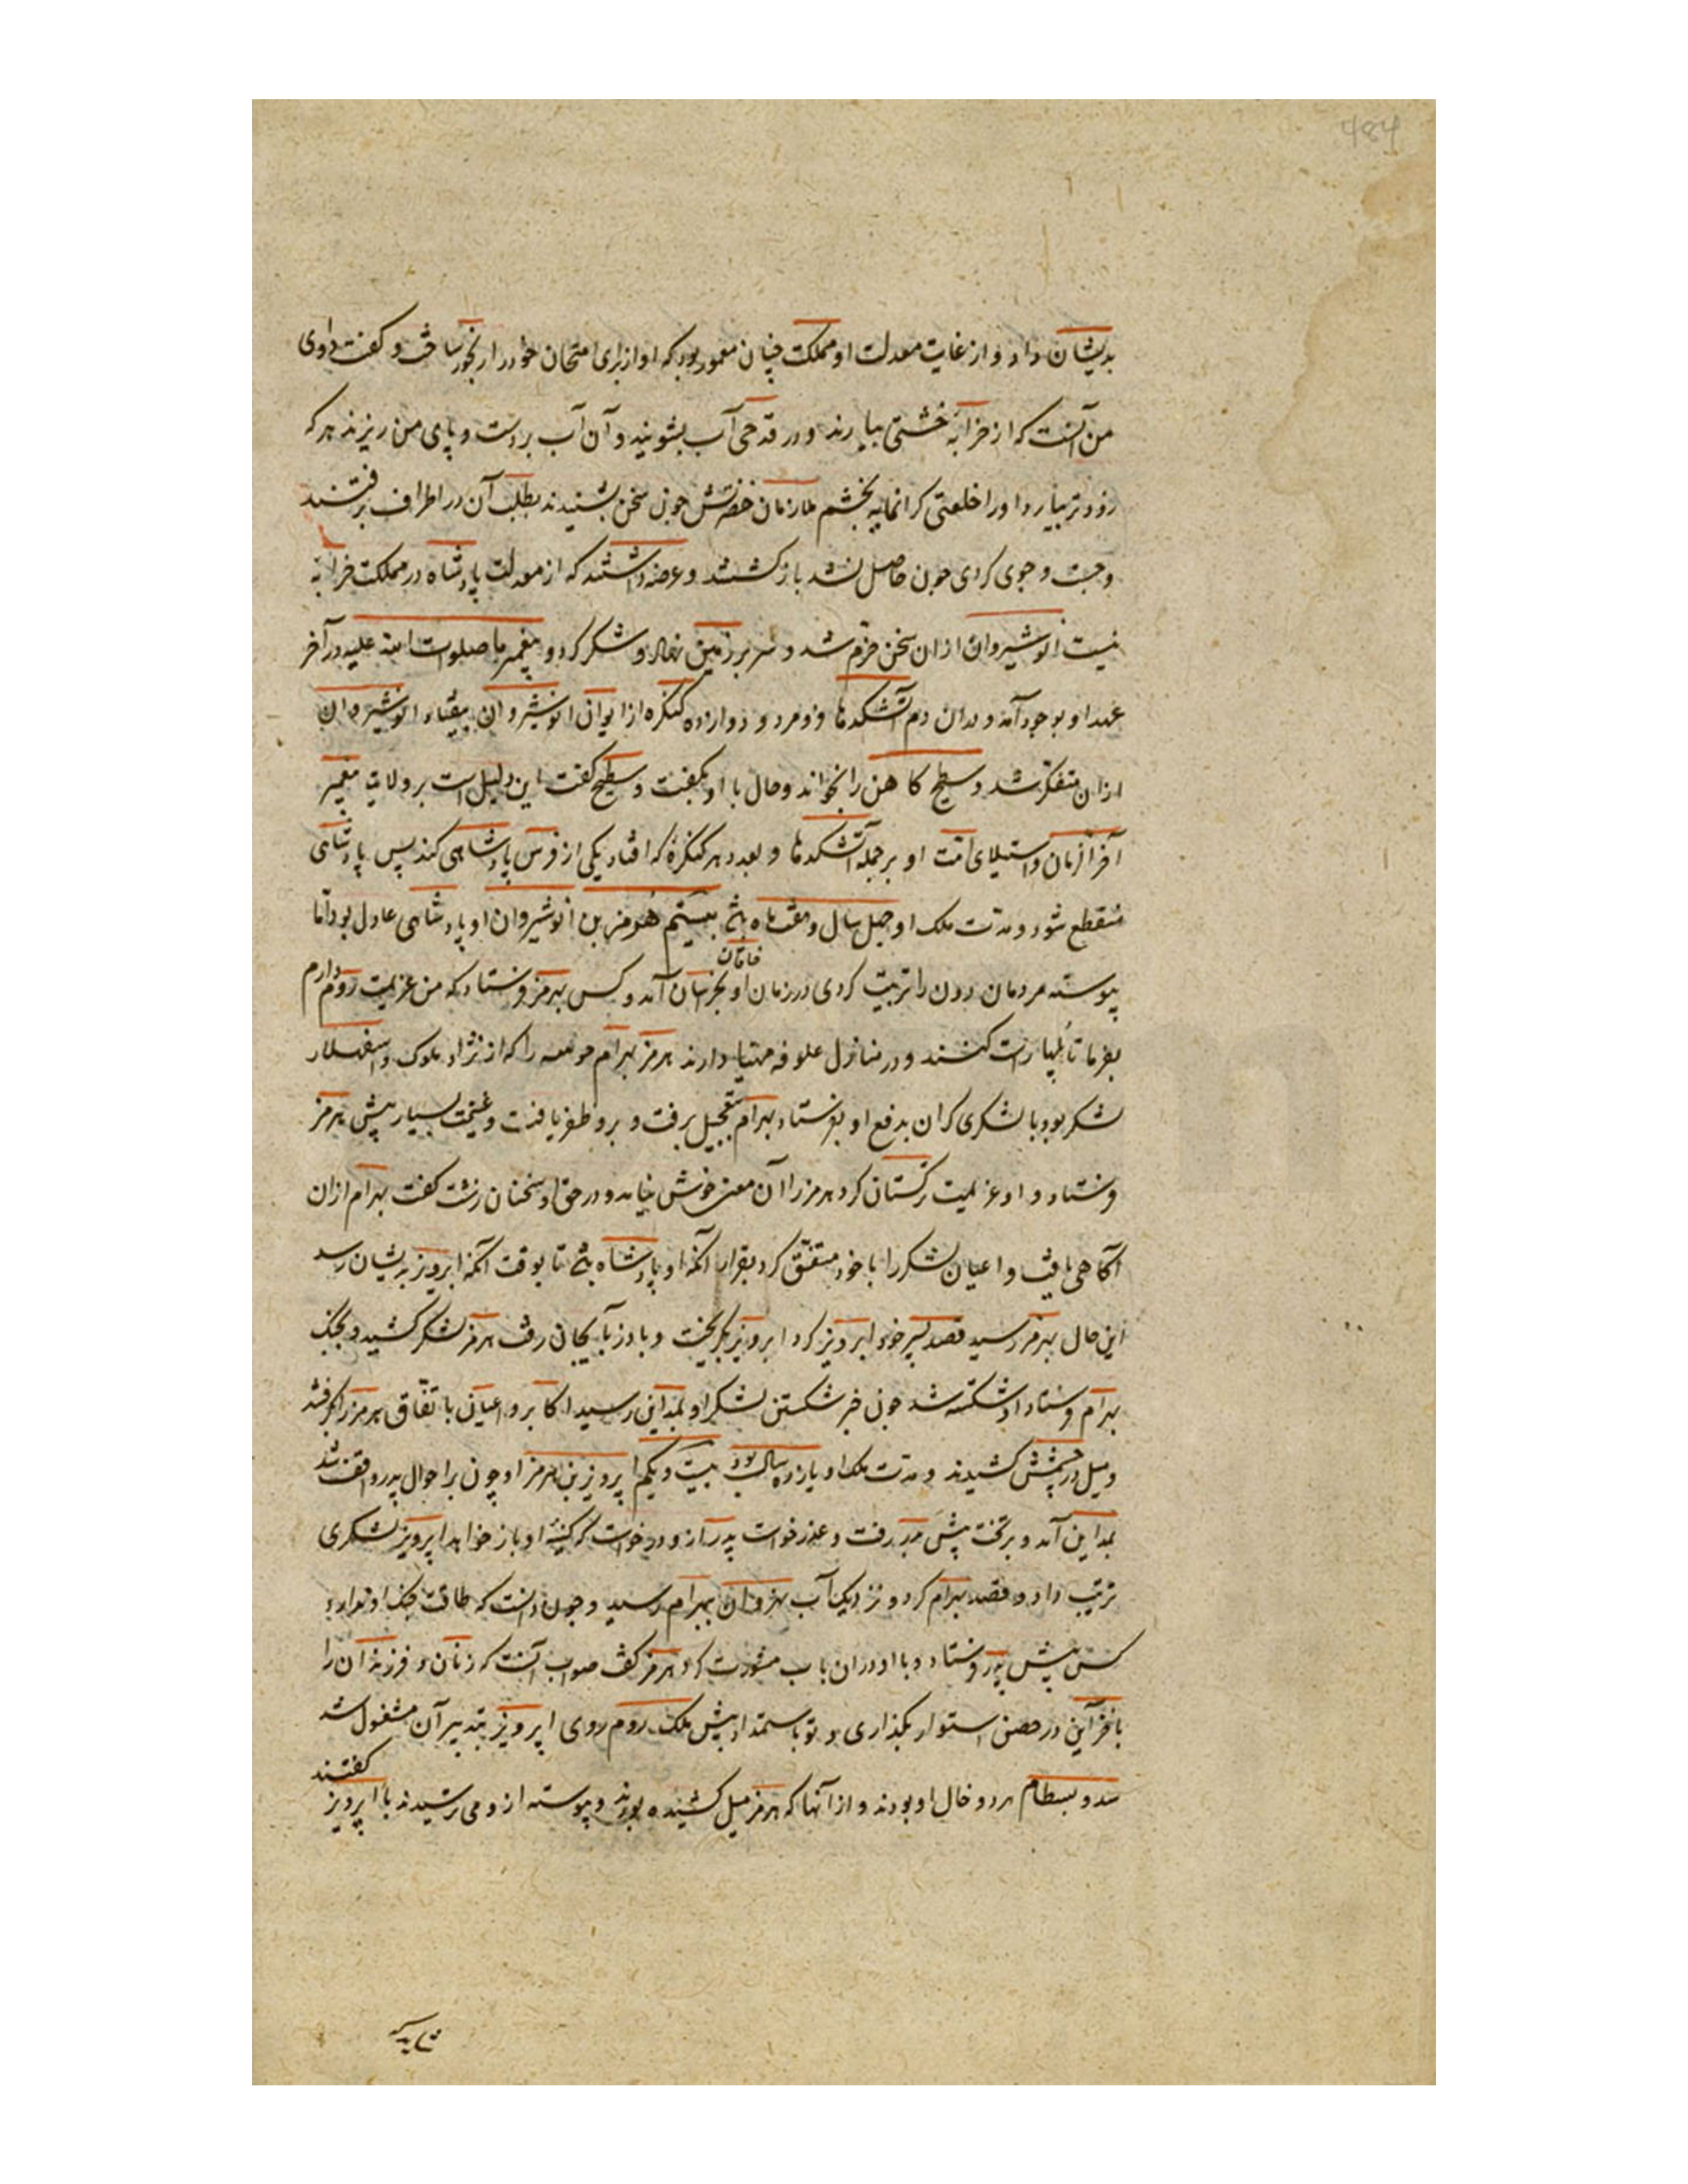 بدیشان داد و از غایت معدلت او مملکت چنان معمور بود که او از برای امتحان خود را رنجور ساخت و گفت دوای
من آنست که از خرابه خشتی بیارند و در قدحی آب بشویند و آن آب بر دست و پای من ریزند هر که
زودتر بیارد او را خلعتی گرانمایه بخشم ملازمان حضرتش چون سخن بشنیدند بطلب آن در اطراف برفتند
و جست و جوی کردی چون حاصل نشد باز گشتند و عرضه داشتند که از معدلت پادشاه در مملکت خرابه
نیست انوشیروان ازان سخن خرم شد و سر بر زمین نهاد و شکر کرد و پیغمبر ما صلوات الله علیه در آخر
عهد او بوجود آمد و بدان دم آتشکدها فرو مرد و دوازده کنگره از ایوان انوشیروان بیفتاد انوشیروان
ازان متفکر شد و سطیح کاهن را بخواند و حال با او بگفت و سطیح گفت این دلیل است بر ولادت پیغمبر
آخر الزمان و استیلای امت او بر جمله آتشکدها و بعدد هر کنگره که افتاد یکی از فرس پادشاهی کند پس پادشاهی
منقطع شود و مدت ملک او چهل سال و هفت ماه بیستم هرمز بن انوشیروان او پادشاهی عادل بود اما
پیوسته مردمان دون را تربیت کردی در زمان او خاقان بخراسان آمد و کس بهرمز فرستاد که من عزیمت روم دارم
بفرما تا پلها راست کنند و در منازل علوفه مهیا دارند هرمز بهرام چوبینه را که از نژاد ملوک و اسفهسلار
لشکر بود با لشکری گران بدفع او بفرستاد بهرام بتعجیل برفت و برو ظفر یافت و غنیمت بسیار پیش هرمز
فرستاد و او عزیمت ترکستان کرد هرمز را آن معنی خوش نیامد و در حق او سخنان زشت گفت بهرام ازان
آگاهی یافت و اعیان لشکر را با خود متفق کرد بقرار آنکه او پادشاه باشد تا بوقت آنکه ابرویز بدیشان رسد
این حال بهرمز رسید قصد پسر خود ابرویز کرد ابرویز بگریخت و باذربایجان رفت هرمز لشکر کشید و بجنگ
بهرام فرستاد و شکسته شد چون خبر شکستن لشکر او بمداین رسید اکابر و اعیان باتفاق هرمز را بگرفتند
و میل در چشمش کشیدند و مدت ملک او یازده سال بود بیست و یکم ابرویز بن هرمز او چون بر احوال پدر واقف شد
بمداین آمد و بر تخت پیش پدر رفت و عذر خواست پدر ازو درخواست که کینه او باز خواهد ابرویز لشکری
ترتیب داد و قصد بهرام کرد و نزدیک آب نهروان ببهرام رسید و چون دانست که طاقت جنگ او ندارد
کس پیش پدر فرستاد و با او دران باب مشورت کرد هرمز گفت صواب آنست که زنان و فرزندان را
با خزاین در حصن استوار بگذاری و تو باستمداد پیش ملک روم روی ابرویز بتدبیر آن مشغول شد
بندو و بسطام هر دو خال او بودند و از آنها که هرمز را میل کشیده بودند و پیوسته ازو می ترسیدند با ابرویز گفتند